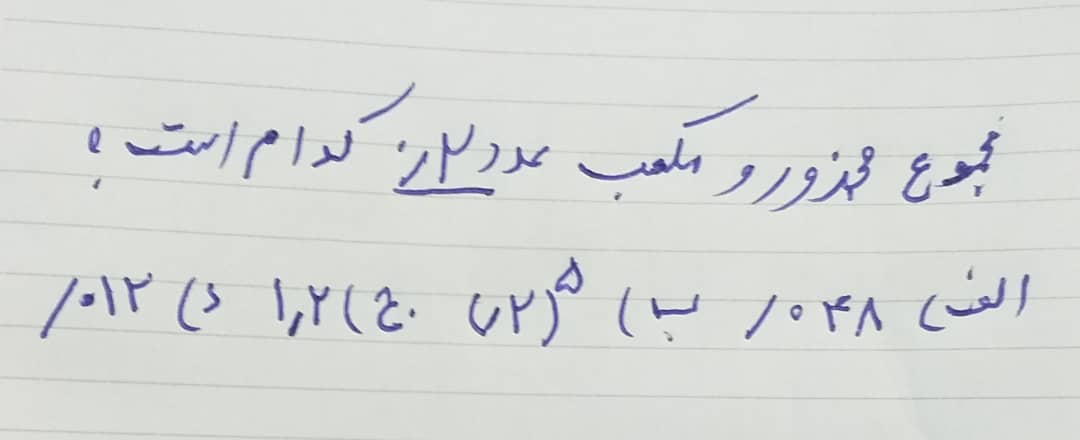 مجموع مجذور و مکعب عدد ۲ر۰ کدام است؟
الف) ۰۴۸ر ب) (۲ر)^۵ ج) ۱,۲ د) ۰۱۲ر